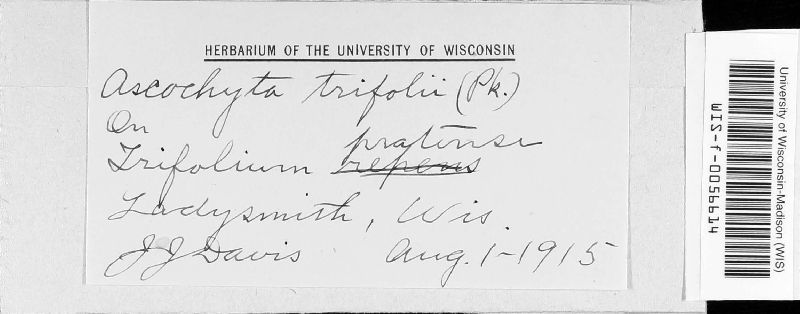 HERBARIUM OF THE UNIVERSITY OF WISCONSIN
Ascochyta trifolii (Pk.)
On
pratense
Trifolium repens
Ladysmith, Wis.
JJ Davis Aug. 1-1915
University of Wisconsin-Madison (WIS)
WIS-f-0056614